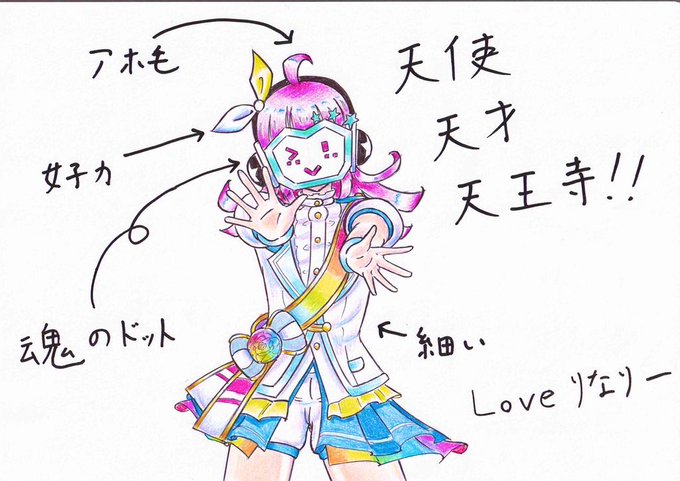 アホ毛
天使
天才
天王寺!!
女子力
魂のドット
細い
Loveりなりー